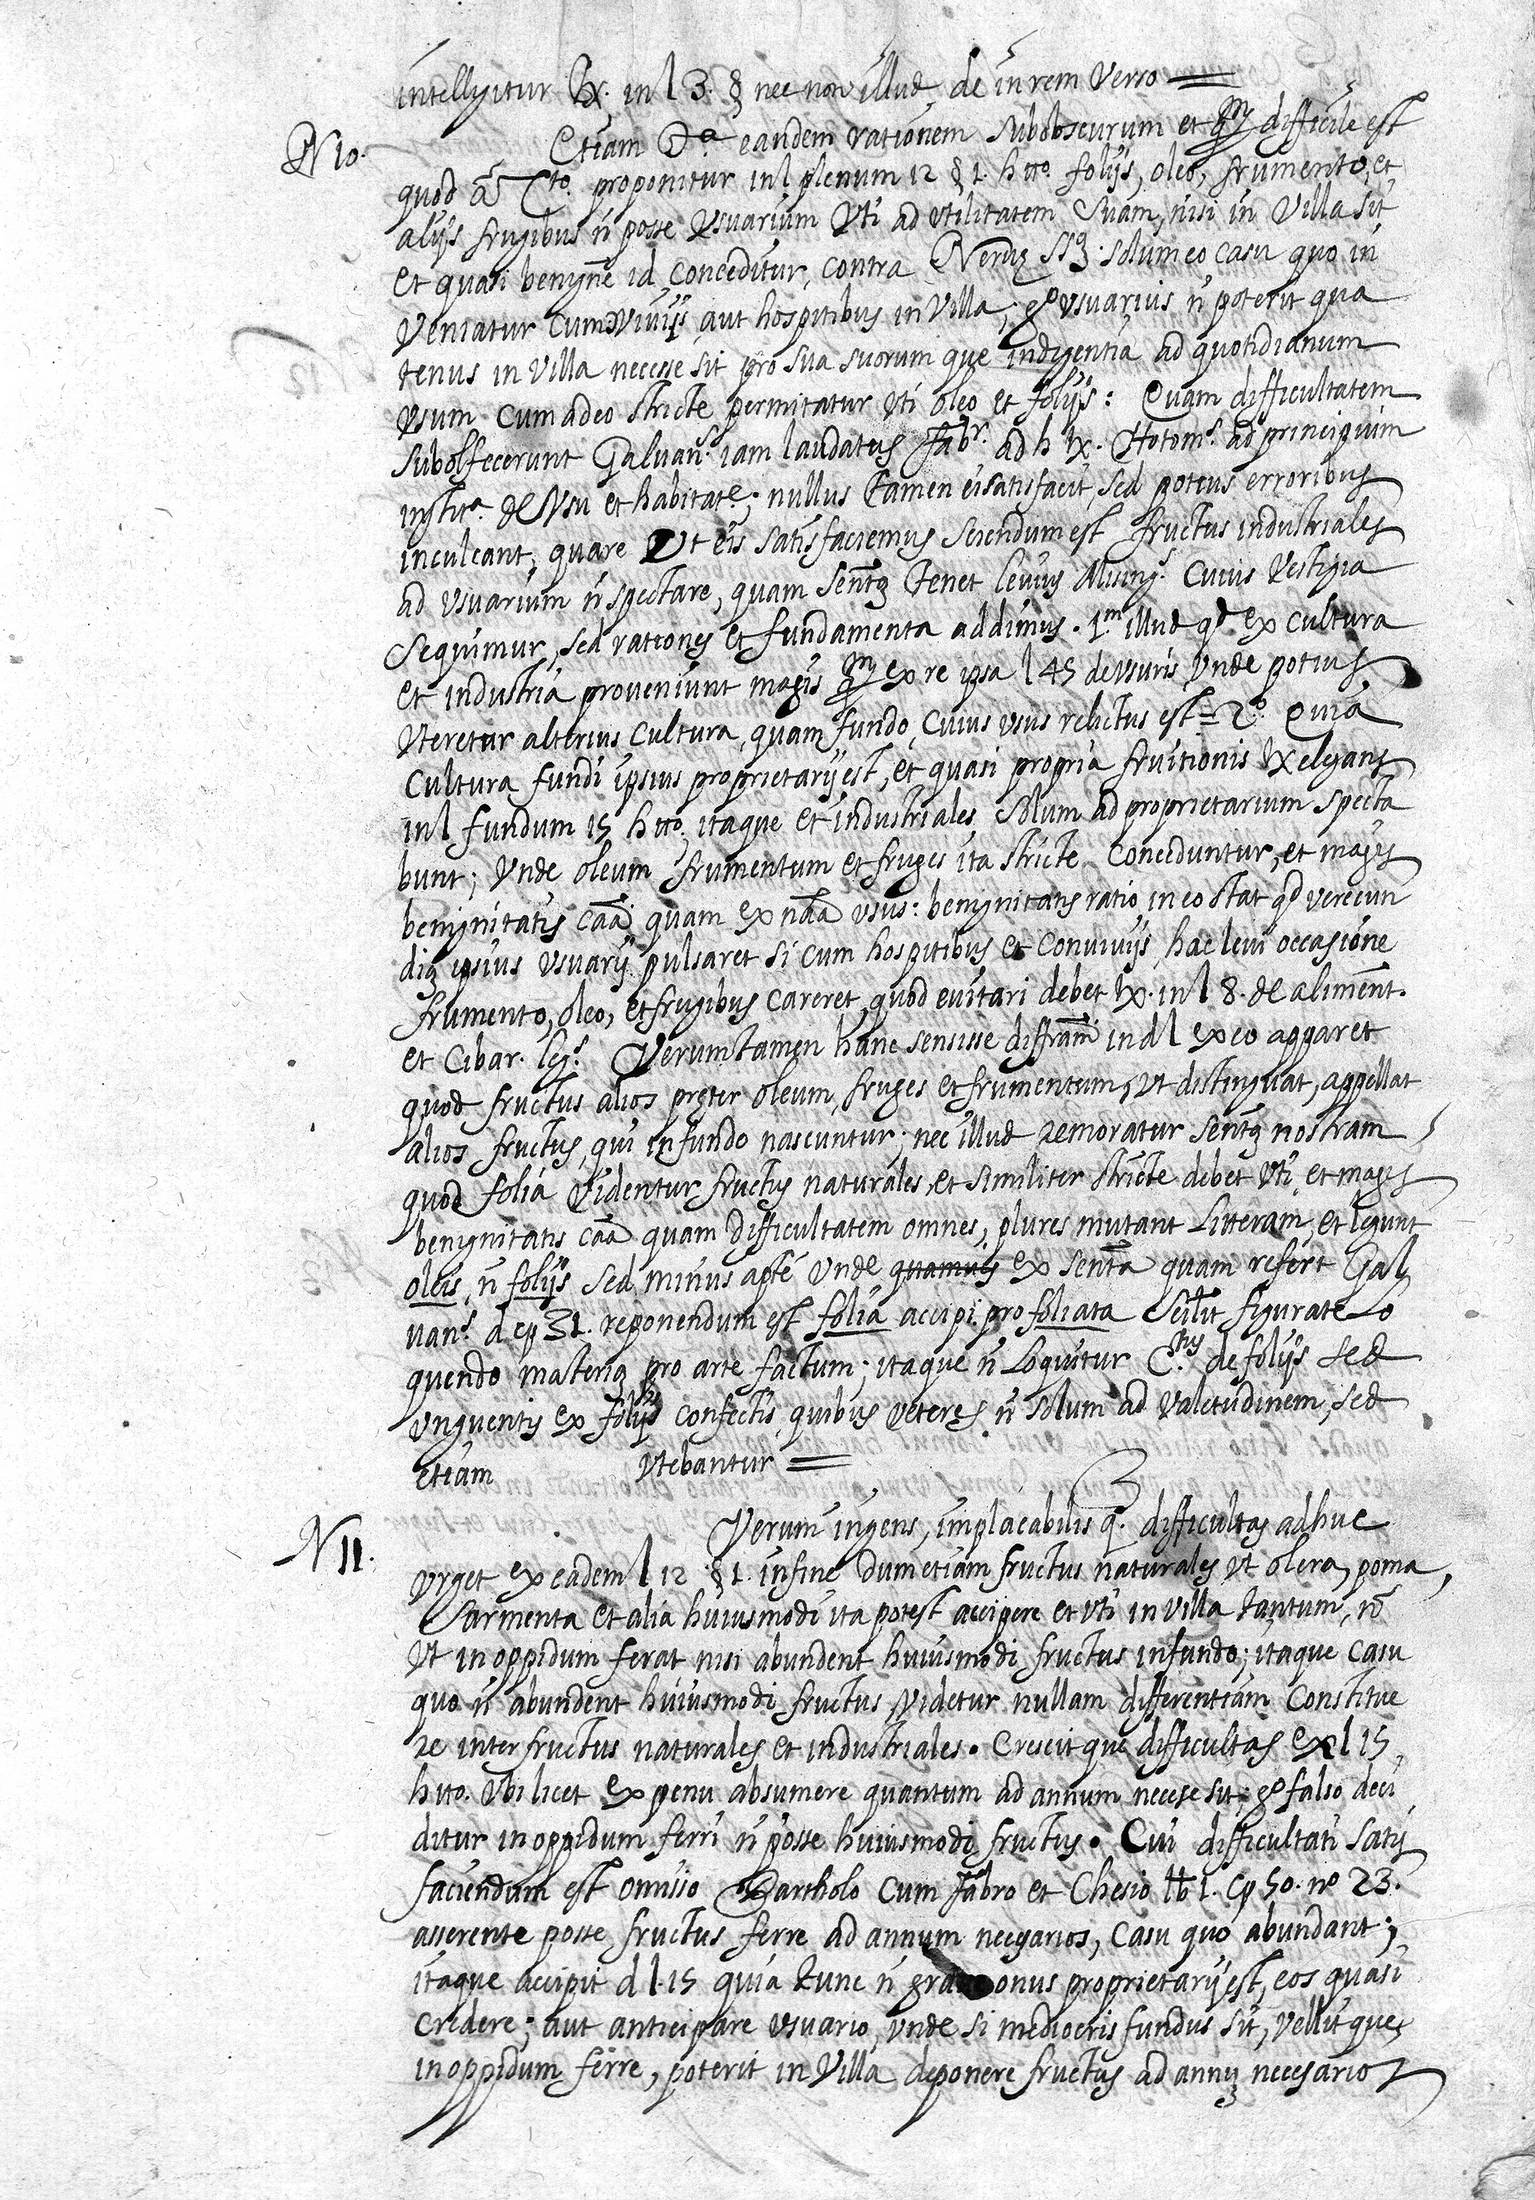 intelligitur tx. in l 3. § nec non illud de in rem Verso =
N10. Etiam eandem rationem subobscurum et qm difficile est
quod a Cto. proponitur in l plenum 12 § 1. h tto. folijs, oleo, frumento, et
alijs frugibus ñ posse Vsuarium Vti ad vtilitatem suam, nisi in Villa sit
et quasi benigne id conceditur, contra solum eo casu quo in
Veniatur cum aut hospitibus in Villa; go vsuarius ñ poterit qua
tenus in Villa necesse sit pro sua suorum que indigentia ad quotidianum
Vsum cum adeo stricte permitatur vti oleo et folijs: Quam difficultatem
subolfecerunt Galuans. iam laudatus Fabr. ad h tx. Hotoms. ad principium
instita. de Vsu et habitate; nullus tamen ei satisfacit, sed potius erroribus
inculcant, quare Vt eis satisfaciemus sciendum est fructus industriales
ad vsuarium ñ spectare, quam tenet cuius Vestigia
sequimur, sed rationes et fundamenta addimus. 1m. illud qd ex cultura
et industria proueniunt magis qm ex re ipsa l 45 de vsuris vnde potius
Vteretur alterius cultura, quam fundo, cuius vsus relictus est = 2o. Quia
cultura fundi ipsius proprietarij est, et quasi propria fruitionis tx elegans
in l fundum 15 h tto. itaque et industriales solum ad proprietarium specta
bunt; Vnde oleum frumentum et fruges ita stricte conceduntur, et magis
benignitatis caa quam ex naa vsus: benignitatis ratio in eo stat qd verecun
diȩ ipsius vsuarij pulsaret si cum hospitibus et conuiuijs hac leui occasione
frumento, oleo, et frugibus careret, quod euitari debet tx. in l 8. de aliment.
et Cibar. Verumtamen hanc sensisse in d l ex eo apparet
quod fructus alios pręter oleum, fruges et frumentum, vt distinguat, appellat
alios fructus, qui in fundo nascuntur; nec illud remoratur nostram
quod folia Videntur fructus naturales, et similiter stricte debet Vti, et magis
benignitatis caa quam difficultatem omnes, plures mutant litteram, et legunt
oleis, ñ folijs sed minus apte vnde quamuis ex quam refert Gal
uans. d cp 31. reponendum est folia accipi pro foliata figurate lo
quendo materia pro arte factum; itaque ñ loquitur Ctus. de folijs sed
vnguentis ex folijs confectis, quibus veteres ñ solum ad valetudinem, sed
etiam Vtebantur =
N11. Verum ingens, implacabilis q. difficultas adhuc
vrget ex eadem l 12 § 1. in fine dum etiam fructus naturales vt olera, poma,
sarmenta et alia huiusmodi ita potest accipere et vti in villa tantum, nō
Vt in oppidum ferat nisi abundent huiusmodi fructus in fundo; itaque casu
quo ñ abundent huiusmodi fructus Videtur nullam differentiam constitue
re inter fructus naturales et industriales. Crescit que difficultas ex l 15
h tto. vbi licet ex penu absumere quantum ad annum necese sit; go falso deci
ditur in oppidum ferri ñ posse huiusmodi fructus. Cui difficultati satis
faciendum est omisso Bartholo cum Fabro et Chesio lb 1. cp 50. no 23.
asserente posse fructus ferre ad annum necesarios, casu quo abundant;
itaque accipit d l 15 quia tunc ñ onus proprietarij est, eos quasi
credere; aut anticipare vsuario, vnde si mediocris fundus sit, vellit que,
in oppidum ferre, poterit in Villa deponere fructus ad annu necesarios